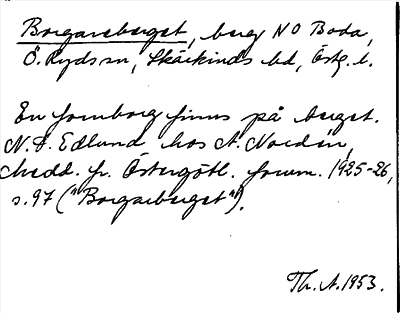 Borgareberget, berg NO Boda,
Ö. Ryds sn, Skärkinds hd, Östg. l.
En fornborg finns på berget.
N. D. Edlund hos A. Nordén,
Medd. fr. Östergötl. fornm. 1925-26,
s. 97 ("Borgarberget").
Th. A. 1953.